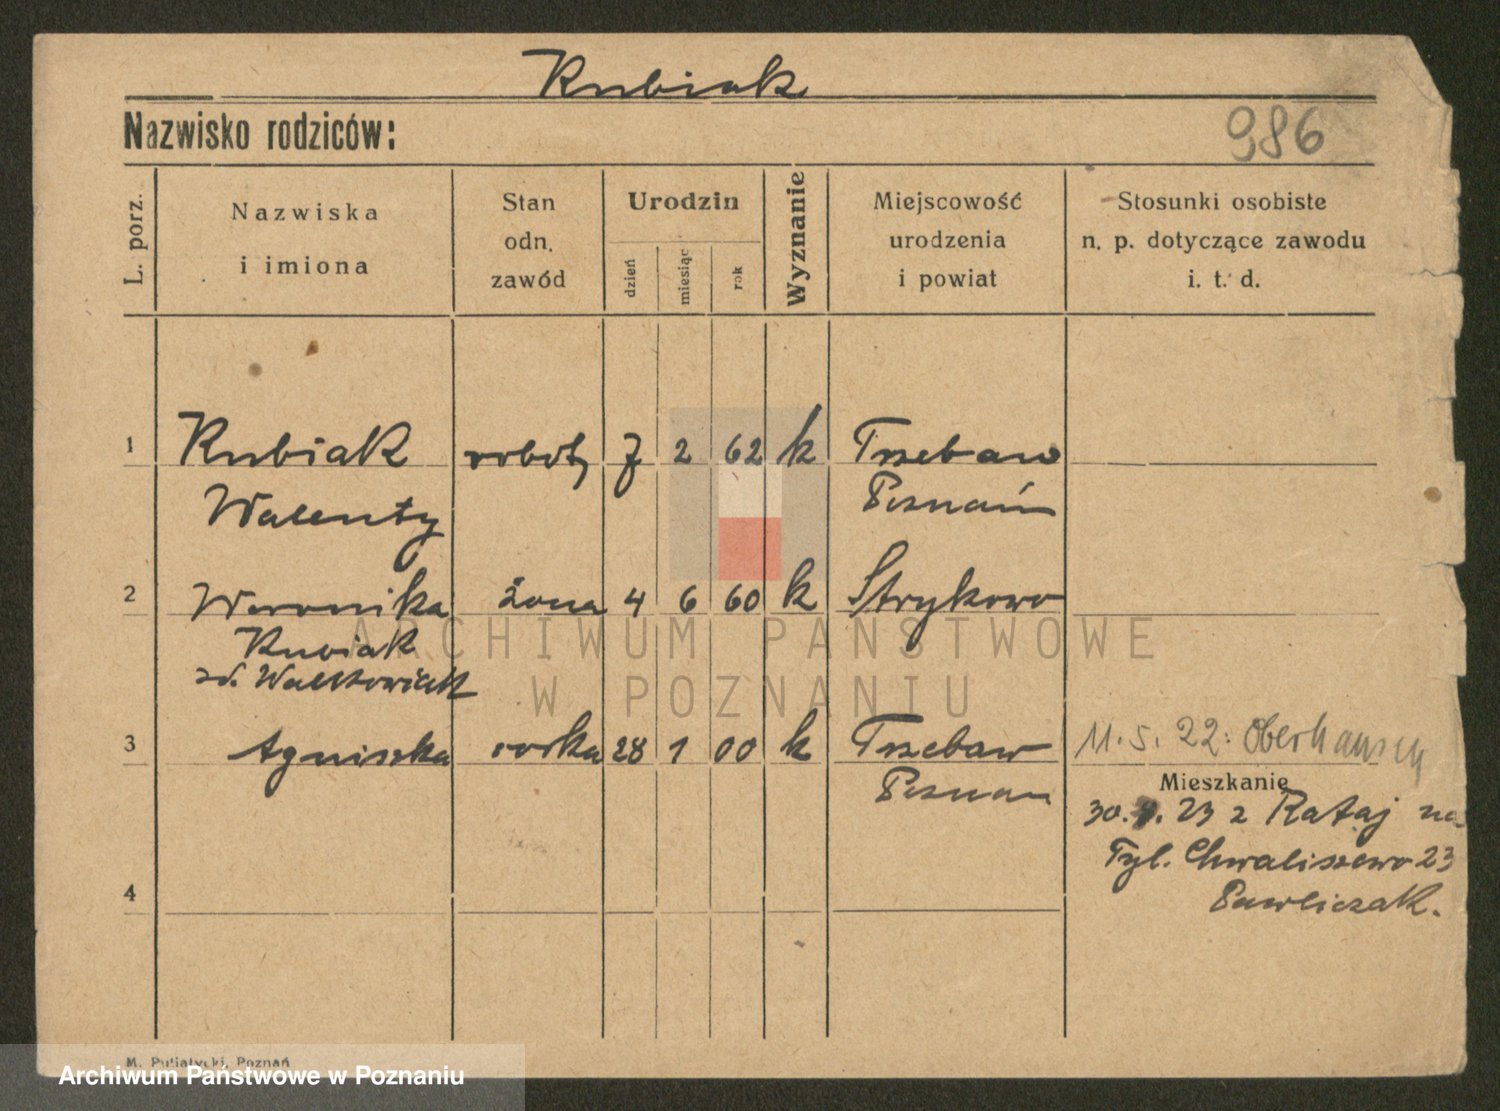 Kubiak
Nazwisko rodziców:
986
L. porz.
Nazwiska
i imiona
Stan
odn.
zawód
Urodzin
dzień
miesiąc
rok
Wyznanie
Miejscowość
urodzenia
i powiat
Stosunki osobiste
n. p. dotyczące zawodu
i. t. d.
1 Kubiak robotn 7 2 62 k Trzebaw
Walenty Poznań
2 Weronika żona 4 6 60 k Strykowo
Kubiak
zd. Walkowiak
3 Agniszka corka 28 1 00 k Trzebaw 11.5.22. Oberhausen
Poznan
Mieszkanie
30. . 23 z Rataj na
Tyl. Chwaliszewo 23
Pawliczak.
4
M. Putiatycki, Poznań
ARCHIWUM PAŃSTWOWE
W POZNANIU
Archiwum Państwowe w Poznaniu